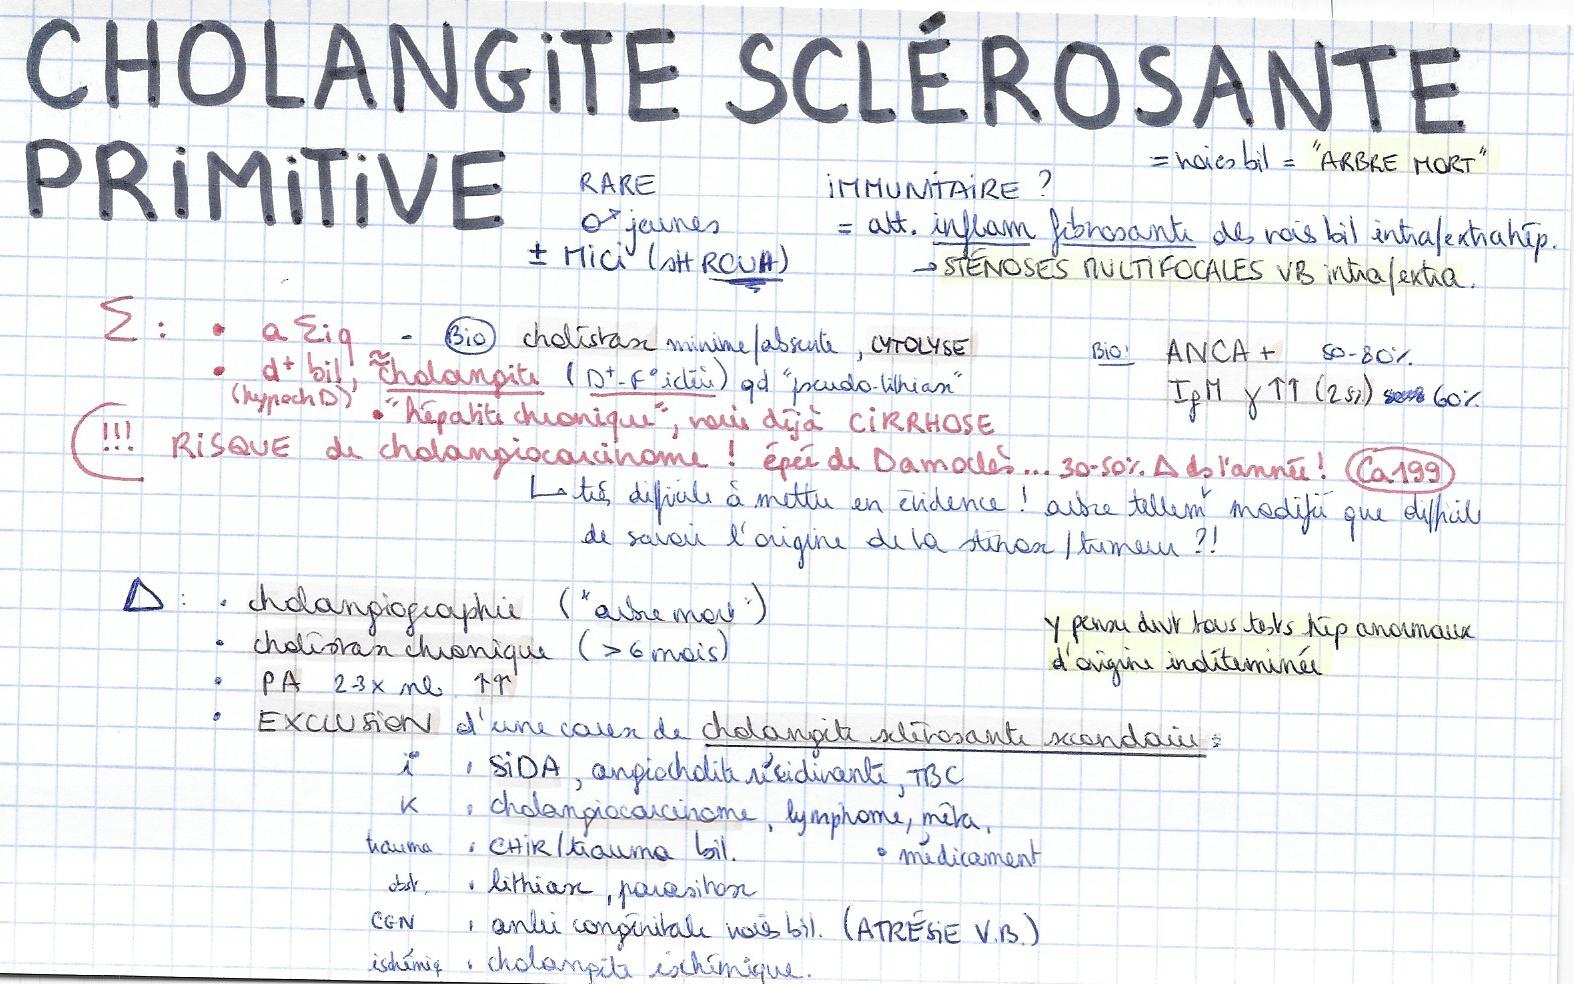 CHOLANGITE SCLÉROSANTE
PRIMITIVE
= voies bil = "ARBRE MORT"
RARE
♂ jeunes
± MICI (stt RCUH)
IMMUNITAIRE ?
= att. inflam fibrosante des voies bil intra/extrahép.
→ STÉNOSES MULTIFOCALES VB intra/extra.
Σ : • a Σiq - Bio cholestase minime/absente, CYTOLYSE
• d+ bil, ≈ cholangite (D+-F°-ictère) qd "pseudo-lithiase"
(hypoch D)
• "hépatite chronique", voire déjà CIRRHOSE
Bio: ANCA + 50-80%
IgM γ ↑↑ (2 si) 60%
!!! RISQUE de cholangiocarcinome ! épée de Damoclès... 30-50% Δ ds l'année ! Ca 199
↳ très difficile à mettre en évidence ! arbre tellemt modifié que difficile
de savoir l'origine de la sténose/tumeur ?!
Δ : • cholangiographie ("arbre mort")
• cholestase chronique (> 6 mois)
• PA 2-3x nl ↑↑
y penser dvt tous tests hép anormaux
d'origine indéterminée
• EXCLUSION d'une cause de cholangite sclérosante secondaire :
i° • SIDA, angiocholite récidivante, TBC
K • cholangiocarcinome, lymphome, méta.
trauma • CHIR/trauma bil. • médicament
obst. • lithiase, parasitose
CGN • anlie congénitale voies bil. (ATRÉSIE V.B.)
ischémiq • cholangite ischémique.